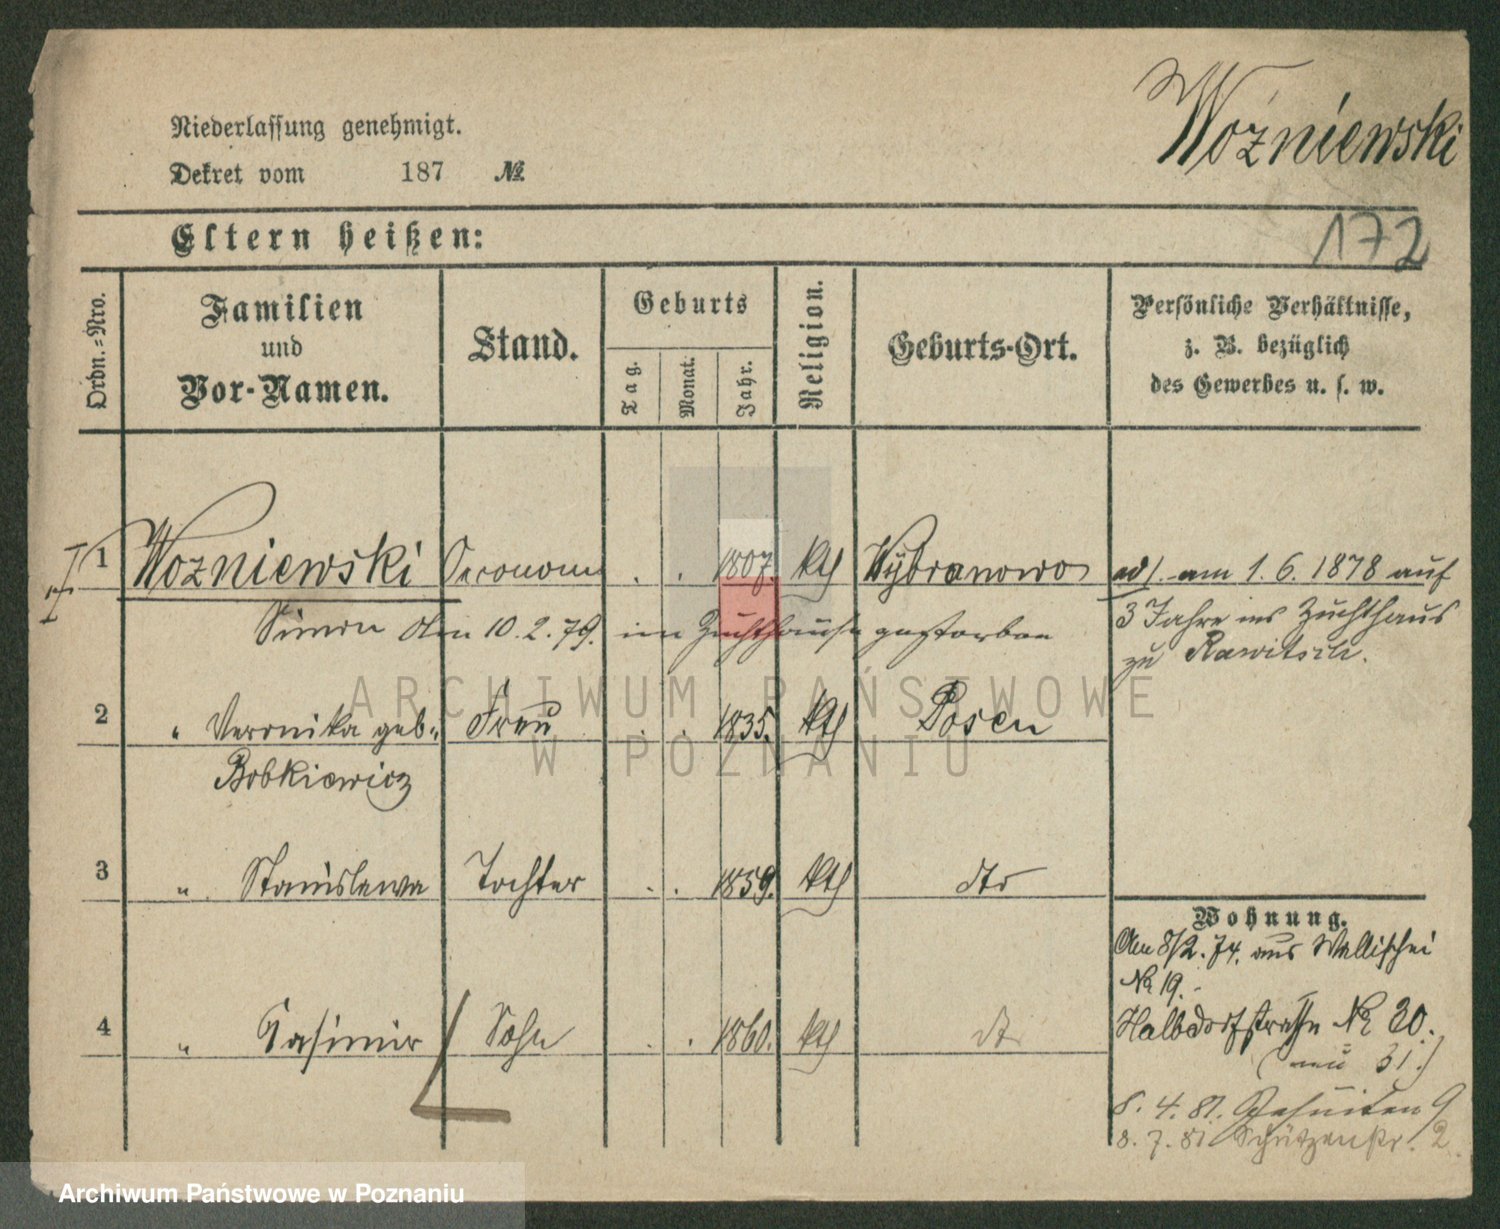 Woźniewski
Niederlassung genehmigt.
Dekret vom 187 №
172
Eltern heißen:
Ordn.-Nro.
Familien
und
Vor-Namen.
Stand.
Geburts
Tag.
Monat.
Jahr.
Religion.
Geburts-Ort.
Persönliche Verhältnisse,
z. B. bezüglich
des Gewerbes u. s. w.
1 Wozniewski Oeconom . . 1807. kth Wybranowo ad 1. am 1. 6. 1878 auf
Simon den 10. 2. 79. im Zuchthause gestorben
3 Jahre ins Zuchthaus
zu Rawitsch.
2 " Veronika geb. Frau . . 1835. kth Posen
Bobkiewicz
3 " Stanislawa Tochter . . 1859. kth dto
Wohnung.
Am 8/2. 74. aus Wallischei
№ 19.
4 " Casimir Sohn . . 1860. kth dto
Halbdorfstrasse № 30.
(neu 31.)
8. 4. 81. Jesuiten 9
8. 7. 81 Schützenstr. 2
ARCHIWUM PAŃSTWOWE
W POZNANIU
Archiwum Państwowe w Poznaniu